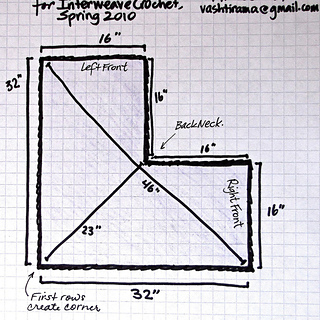 for Interweave Crochet,
Spring 2010
vashtirama@gmail.com
16"
32"
Left Front
16"
Back Neck.
16"
46"
Right Front
16"
23"
First rows
create corner
32"